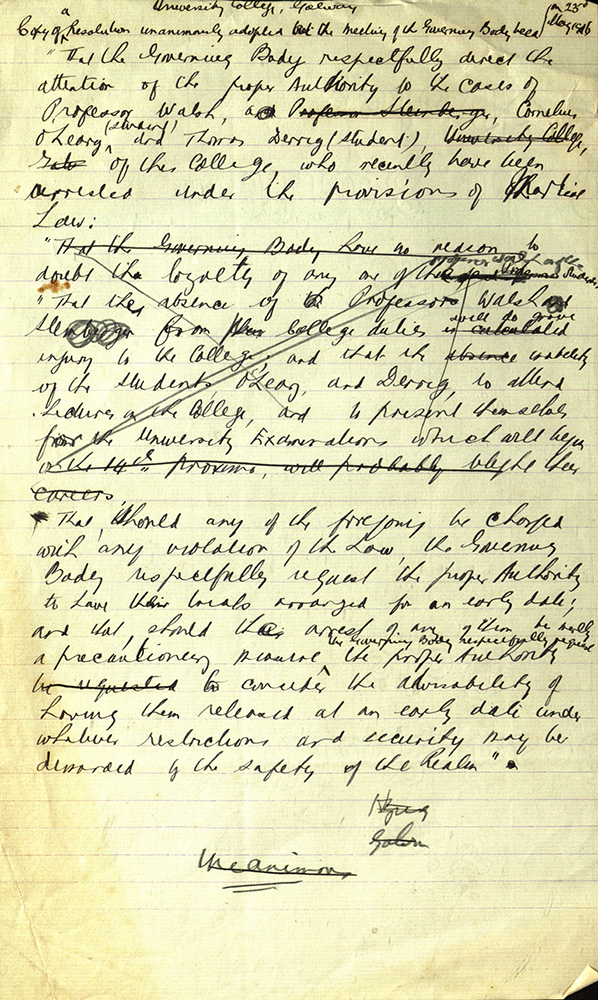 University College, Galway
Copy of a Resolution unanimously adopted at the meeting of the Governing Body held on 23rd May 1916
"That the Governing Body respectfully direct the
attention of the proper Authority to the cases of
Professor Walsh, and Professor Steinberger, Cornelius
O'Leary (student), and Thomas Derrig (student), University College,
of this College, who recently have been
arrested under the provisions of Martial
Law:
"That the Governing Body have no reason to
doubt the loyalty of any one of the
"That the absence of Professors Walsh and
Steinberger from College duties is calculated will do grave
injury to the College, and that the absence inability
of the students O'Leary, and Derrig, to attend
Lectures in the College, and to present themselves
for the University Examinations which will begin
on the 14th proximo, will probably blight their
careers.
"That, should any of the foregoing be charged
with any violation of the Law, the Governing
Body respectfully request the proper Authority
to have their trials arranged for an early date;
and that, should the arrest of any of them be merely
a precautionary measure, the Governing Body respectfully request the proper Authority
be requested to consider the advisability of
having them released at an early date under
whatever restrictions and security may be
demanded by the safety of the Realm"
Unanimous